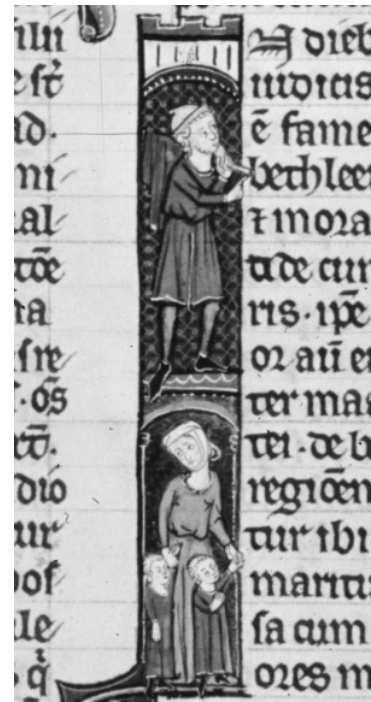 filii
e st̄
ad.
mi
al
tōe
na
sre
. os̄
et̄.
dio
ur
pos
le
s q̄
N dieb
iudicis
ē fame
bethlee
⁊ moa
ti de cu
ris. ip̄e
or aū e
ter maa
tei. de b
regiōen
tur ibi
maritu
sa cum
ores m